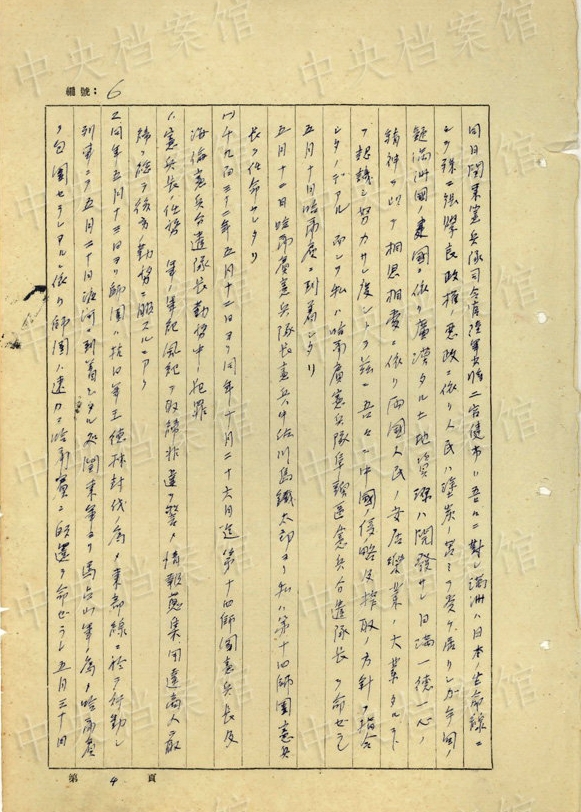 中央档案馆
編號：6
同日関東憲兵隊司令官陸軍少将二宮健市ハ吾々ニ対シ満洲ハ日本ノ生命線ニ
シテ殊ニ張学良政権ノ悪政ニ依リ人民ハ塗炭ノ苦ミヲ受ケ居リシガ今回ノ
満洲国ノ建国ニ依リ広漠タル土地資源ハ開発サレ日満一徳一心ノ
精神ヲ以テ相思相愛ニ依リ両国人民ノ安居楽業ノ大業タルヲ
認識シ努力サレ度シトテ茲ニ吾々ニ中国ノ侵略及搾取ノ方針ヲ指令
シタノデアル 而シテ私ハ哈爾濱憲兵隊 憲兵分遣隊長ヲ命ゼラレ
五月十日哈爾濱ニ到着シタリ
五月十二日哈爾濱憲兵隊長憲兵中佐川島鐵太郎ヨリ私ハ第十四師団憲兵
長ヲ任命サレタリ
(1)一九三二年五月十二日ヨリ同年十月二十六日迄第十四師団憲兵長及
海倫憲兵分遣隊長勤務中ノ犯罪
1、憲兵長ノ任務 軍ノ軍紀風紀ヲ取締非違ヲ警メ情報蒐集用達商人ノ取
締ヲ 後方ノ勤務ニ服スルニアリ
2、同年五月十三日ヨリ師団ハ抗日軍王徳林討伐ノ為メ東部線ニ於テ行動シ
列車ニテ五月二十日 河ニ到着シタル処関東軍ヨリ馬占山軍ノ為メ哈爾濱
ヲ包囲セラレタルニ依リ師団ハ速カニ哈爾濱ニ帰還ヲ命ゼラレ五月三十日
第 4 頁